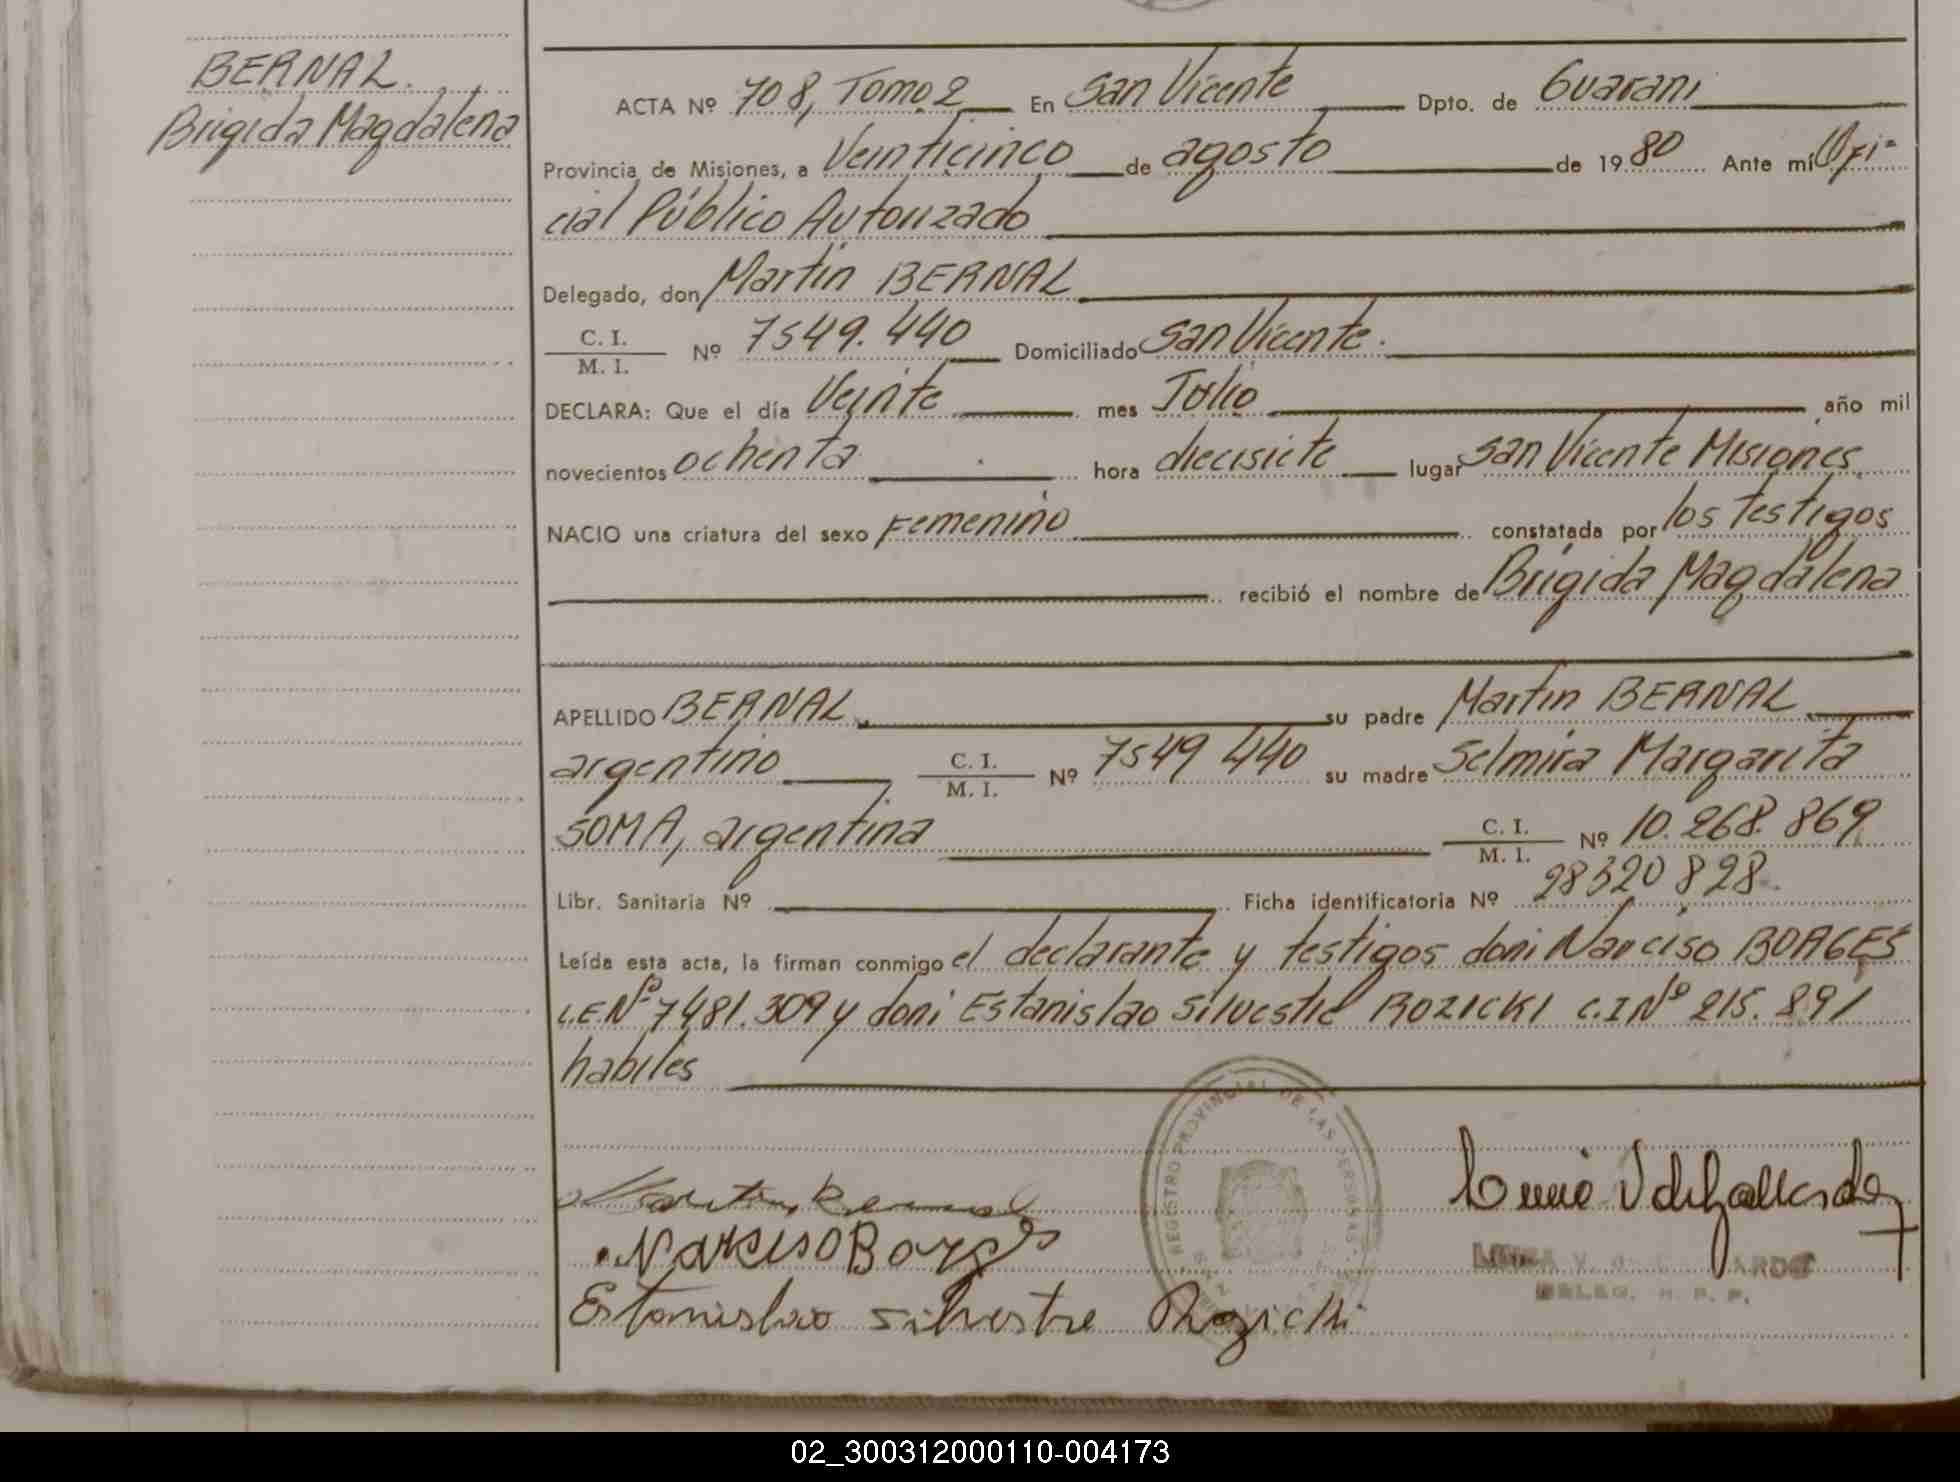 BERNAL.
Brigida Magdalena
ACTA Nº 708, Tomo 2 En San Vicente Dpto. de Guarani
Provincia de Misiones, a Veinticinco de agosto de 1980 Ante mí Ofi-
cial Público Autorizado
Delegado, don Martín BERNAL
C. I.
M. I. Nº 7549.440 Domiciliado San Vicente.
DECLARA: Que el día Veinte mes Julio año mil
novecientos ochenta hora diecisiete lugar San Vicente Misiones
NACIO una criatura del sexo Femenino constatada por los testigos
recibió el nombre de Brigida Magdalena
APELLIDO BERNAL su padre Martín BERNAL
argentino C. I.
M. I. Nº 7549 440 su madre Selmira Margarita
SOMA, argentina C. I.
M. I. Nº 10.268.869
Libr. Sanitaria Nº Ficha identificatoria Nº 28320828.
Leída esta acta, la firman conmigo el declarante y testigos don: Narciso BORGES
L.E.Nº 7481.309 y don: Estanislao Silvestre ROZICKI C.I Nº 215.891
habiles
REGISTRO PROVINCIAL DE LAS PERSONAS
Martin Bernal
Narciso Borges
Estanislao Silvestre Rozicki
DELEG. R. P. P.
02_300312000110-004173